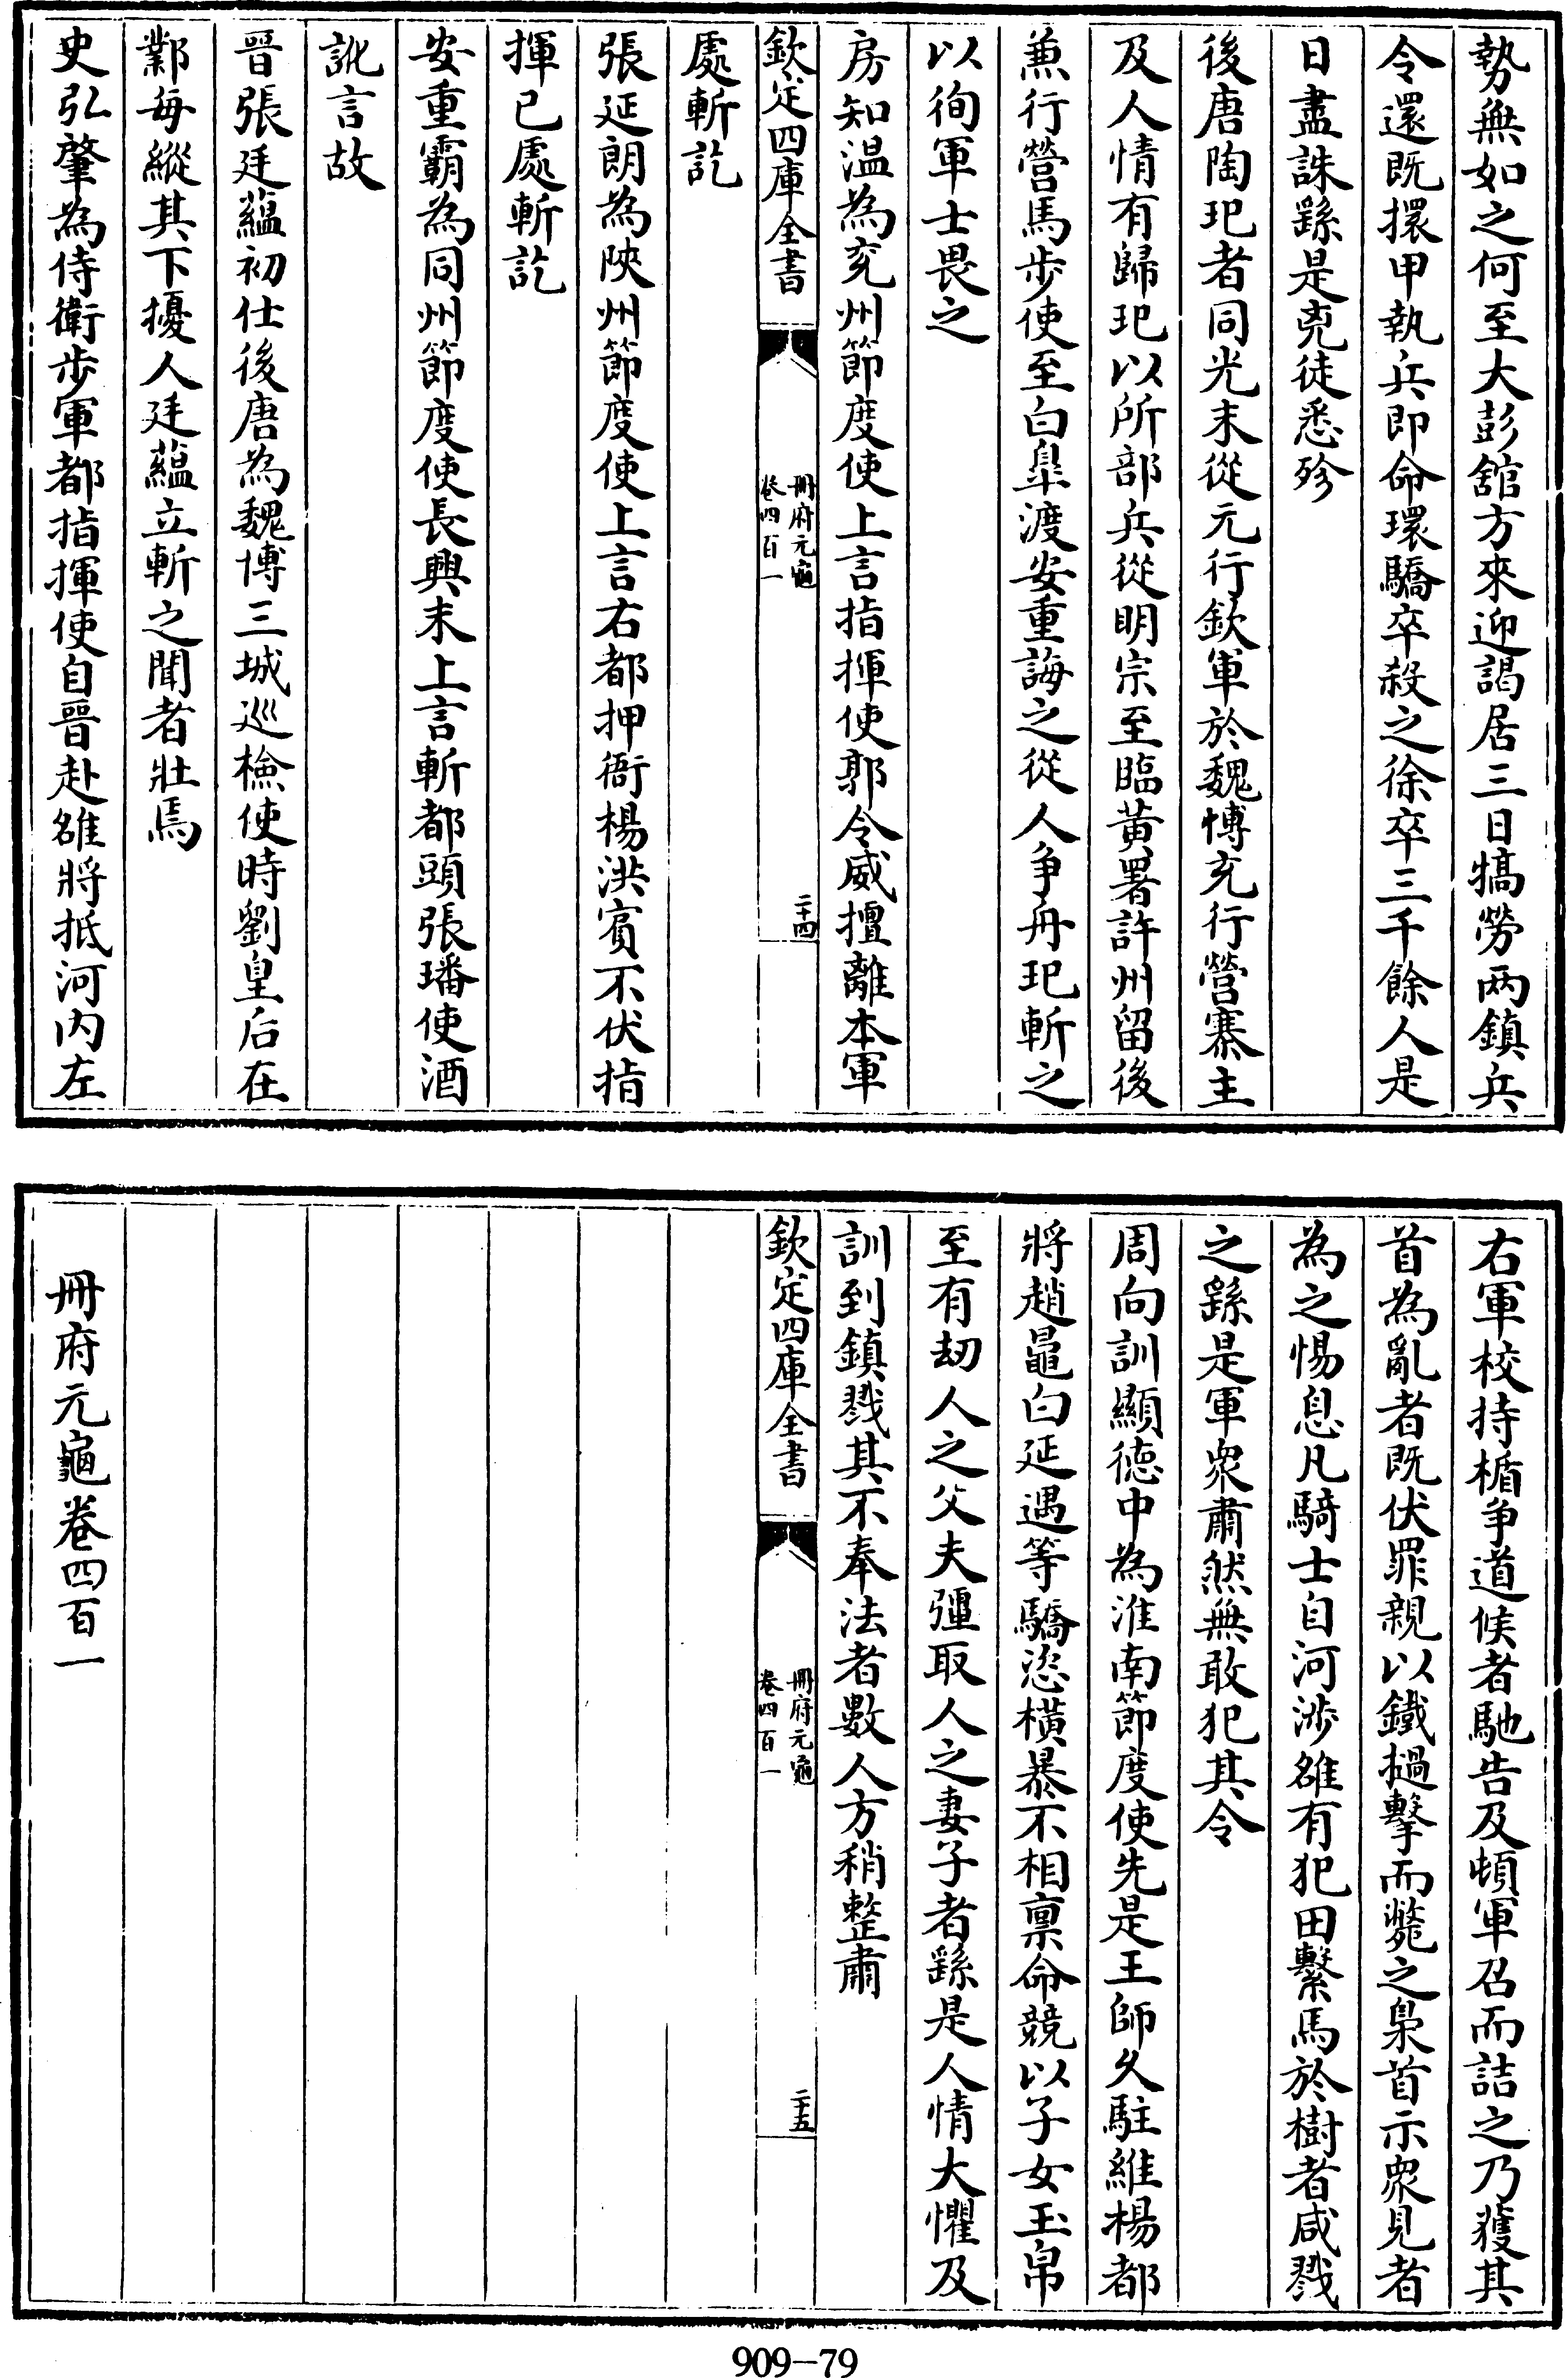 勢無如之何至大彭舘方來迎謁居三日犒勞兩鎮兵
令還既擐甲執兵即命環驕卒殺之徐卒三千餘人是
日盡誅繇是兇徒悉殄
後唐陶玘者同光末從元行欽軍於魏博充行營寨主
及人情有歸玘以所部兵從明宗至臨黃署許州留後
兼行營馬步使至白臯渡安重誨之從人争舟玘斬之
以徇軍士畏之
房知溫為兖州節度使上言指揮使郭令威擅離本軍
欽定四庫全書
冊府元龜
卷四百一
二十四
處斬訖
張延朗為陜州節度使上言右都押衙楊洪賓不伏指
揮已處斬訖
安重霸為同州節度使長興末上言斬都頭張璠使酒
訛言故
晉張廷蘊初仕後唐為魏博三城巡檢使時劉皇后在
鄴每縱其下擾人廷蘊立斬之聞者壯焉
史弘肇為侍衛步軍都指揮使自晉赴雒將抵河内左
右軍校持楯争道候者馳告及頓軍召而詰之乃獲其
首為亂者既伏罪親以鐵撾擊而斃之梟首示衆見者
為之惕息凡騎士自河涉雒有犯田繫馬於樹者咸戮
之繇是軍衆肅然無敢犯其令
周向訓顯德中為淮南節度使先是王師久駐維楊都
將趙鼂白延遇等驕恣橫暴不相禀命競以子女玉帛
至有刼人之父夫彊取人之妻子者繇是人情大懼及
訓到鎮戮其不奉法者數人方稍整肅
欽定四庫全書
冊府元龜
卷四百一
二十五
冊府元龜卷四百一
909-79